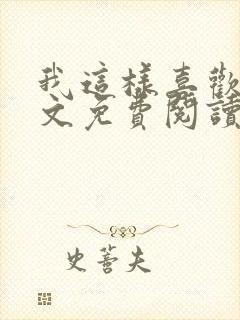 我這樣喜歡
文免費閱讀
史蕾夫